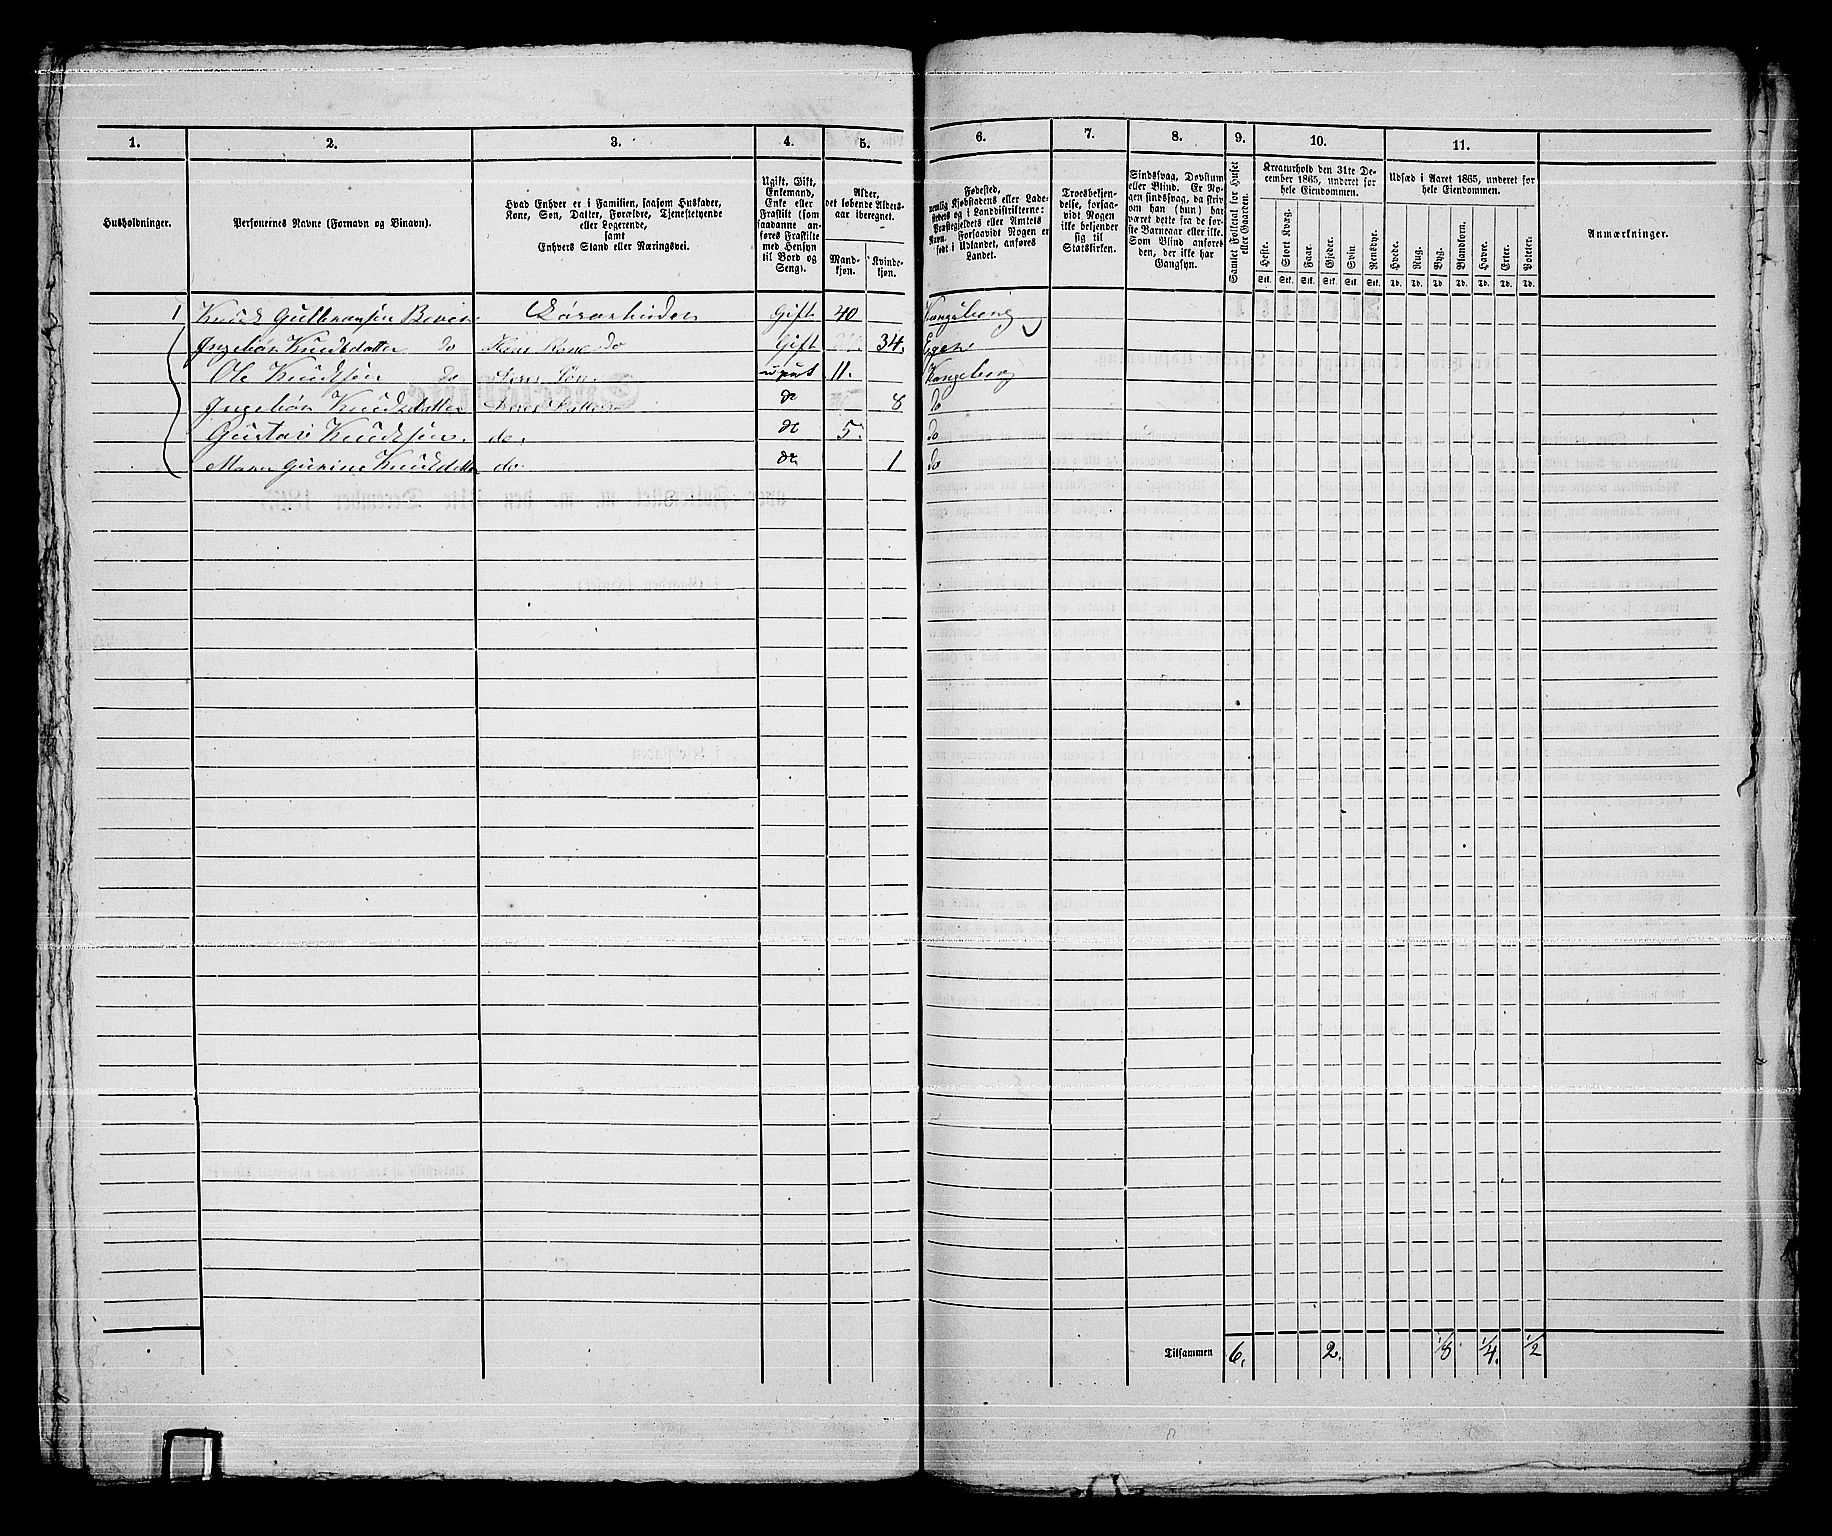 1. 2. 3. 4. 5. 6. 7. 8. 9. 10. 11.
Husholdninger.
Personernes Navne (Fornavn og Binavn).
Hvad Enhver er i Familien, saasom Husfader,
Kone, Søn, Datter, Forældre, Tjenestetyende
eller Logerende,
samt
Enhvers Stand eller Næringsvei.
Ugift, Gift,
Enkemand,
Enke eller
Fraskilt (som
saadanne an-
føres Fraskilte
med Hensyn
til Bord og
Seng).
Alder,
det løbende Alders-
aar iberegnet.
Mand-
kjøn.
Kvinde-
kjøn.
Fødested,
nemlig Kjøbstadens eller Lade-
stedets og i Landdistrikterne:
Præstegjeldets eller Amtets
Navn. Forsaavidt Nogen er
født i Udlandet, anføres
Landet.
Troesbekjen-
delse, forsaa-
vidt Nogen
ikke bekjender
sig til
Statskirken.
Sindssvag, Døvstum
eller Blind. Er No-
gen sindssvag, da skriv
om han (hun) har
været dette fra de for-
ste Barneaar eller ikke.
Som Blind anføres
den, der ikke har
Gangsyn.
Samlet Folketal for Huset
eller Gaarden.
Kreaturhold den 31te De-
cember 1865, underet for
hele Eiendommen.
Heste. Stort Kvæg. Faar. Gjeder. Svin. Rensdyr.
Stk. Stk. Stk. Stk. Stk. Stk.
Udsæd i Aaret 1865, underet for
hele Eiendommen.
Hvede. Rug. Byg. Blandkorn. Havre. Erter. Poteter.
Td. Td. Td. Td. Td. Td. Td.
Anmærkninger.
1 Knud Gulbransen Gift 40 Kongsberg
Ingebór Knudsdatter do Hans Kone do Gift 34.
Ole Knudsen do Søn ugift 11. Kongsberg
Ingebór Knudsdatter do 8 do
Gustav Knudsen. do. do 5. do
Maren Gurine Knudsdatter do do 1 do
Tilsammen 6. 2. 1/8 1/4. 1/2